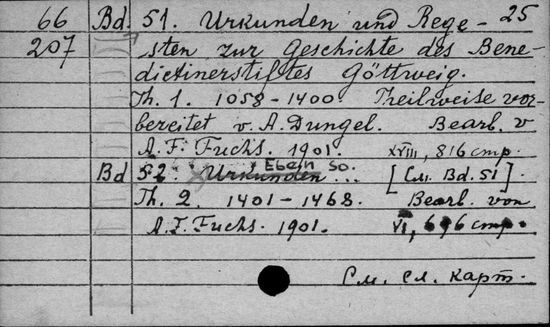 66 Bd. 51. Urkunden und Rege- 25
207 sten zur Geschichte des Bene-
dictinerstiftes Göttweig.
Th. 1. 1058-1400. Theilweise vor-
bereitet v. A. Dungel. Bearb. v
A. F. Fuchs. 1901. XVIII, 816 стр.
Bd 52. Urkunden ... Eben so. [См. Bd. 51].
Th. 2. 1401-1468. Bearb. von
A. F. Fuchs. 1901. VI, 696 стр.
См. сл. карт.